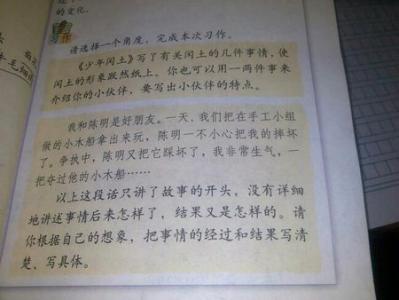 的变化。
请选择一个角度，完成本次习作。
《少年闰土》写了有关闰土的几件事情，使
闰土的形象跃然纸上。你也可以用一两件事来
介绍你的小伙伴，要写出小伙伴的特点。
我和陈明是好朋友。一天，我们把在手工小组
做的小木船拿出来玩，陈明一不小心把我的摔坏
了。争执中，陈明又把它踩坏了，我非常生气，一
把夺过他的小木船……
以上这段话只讲了故事的开头，没有详细
地讲述事情后来怎样了，结果又是怎样的。请
你根据自己的想象，把事情的经过和结果写清
楚、写具体。